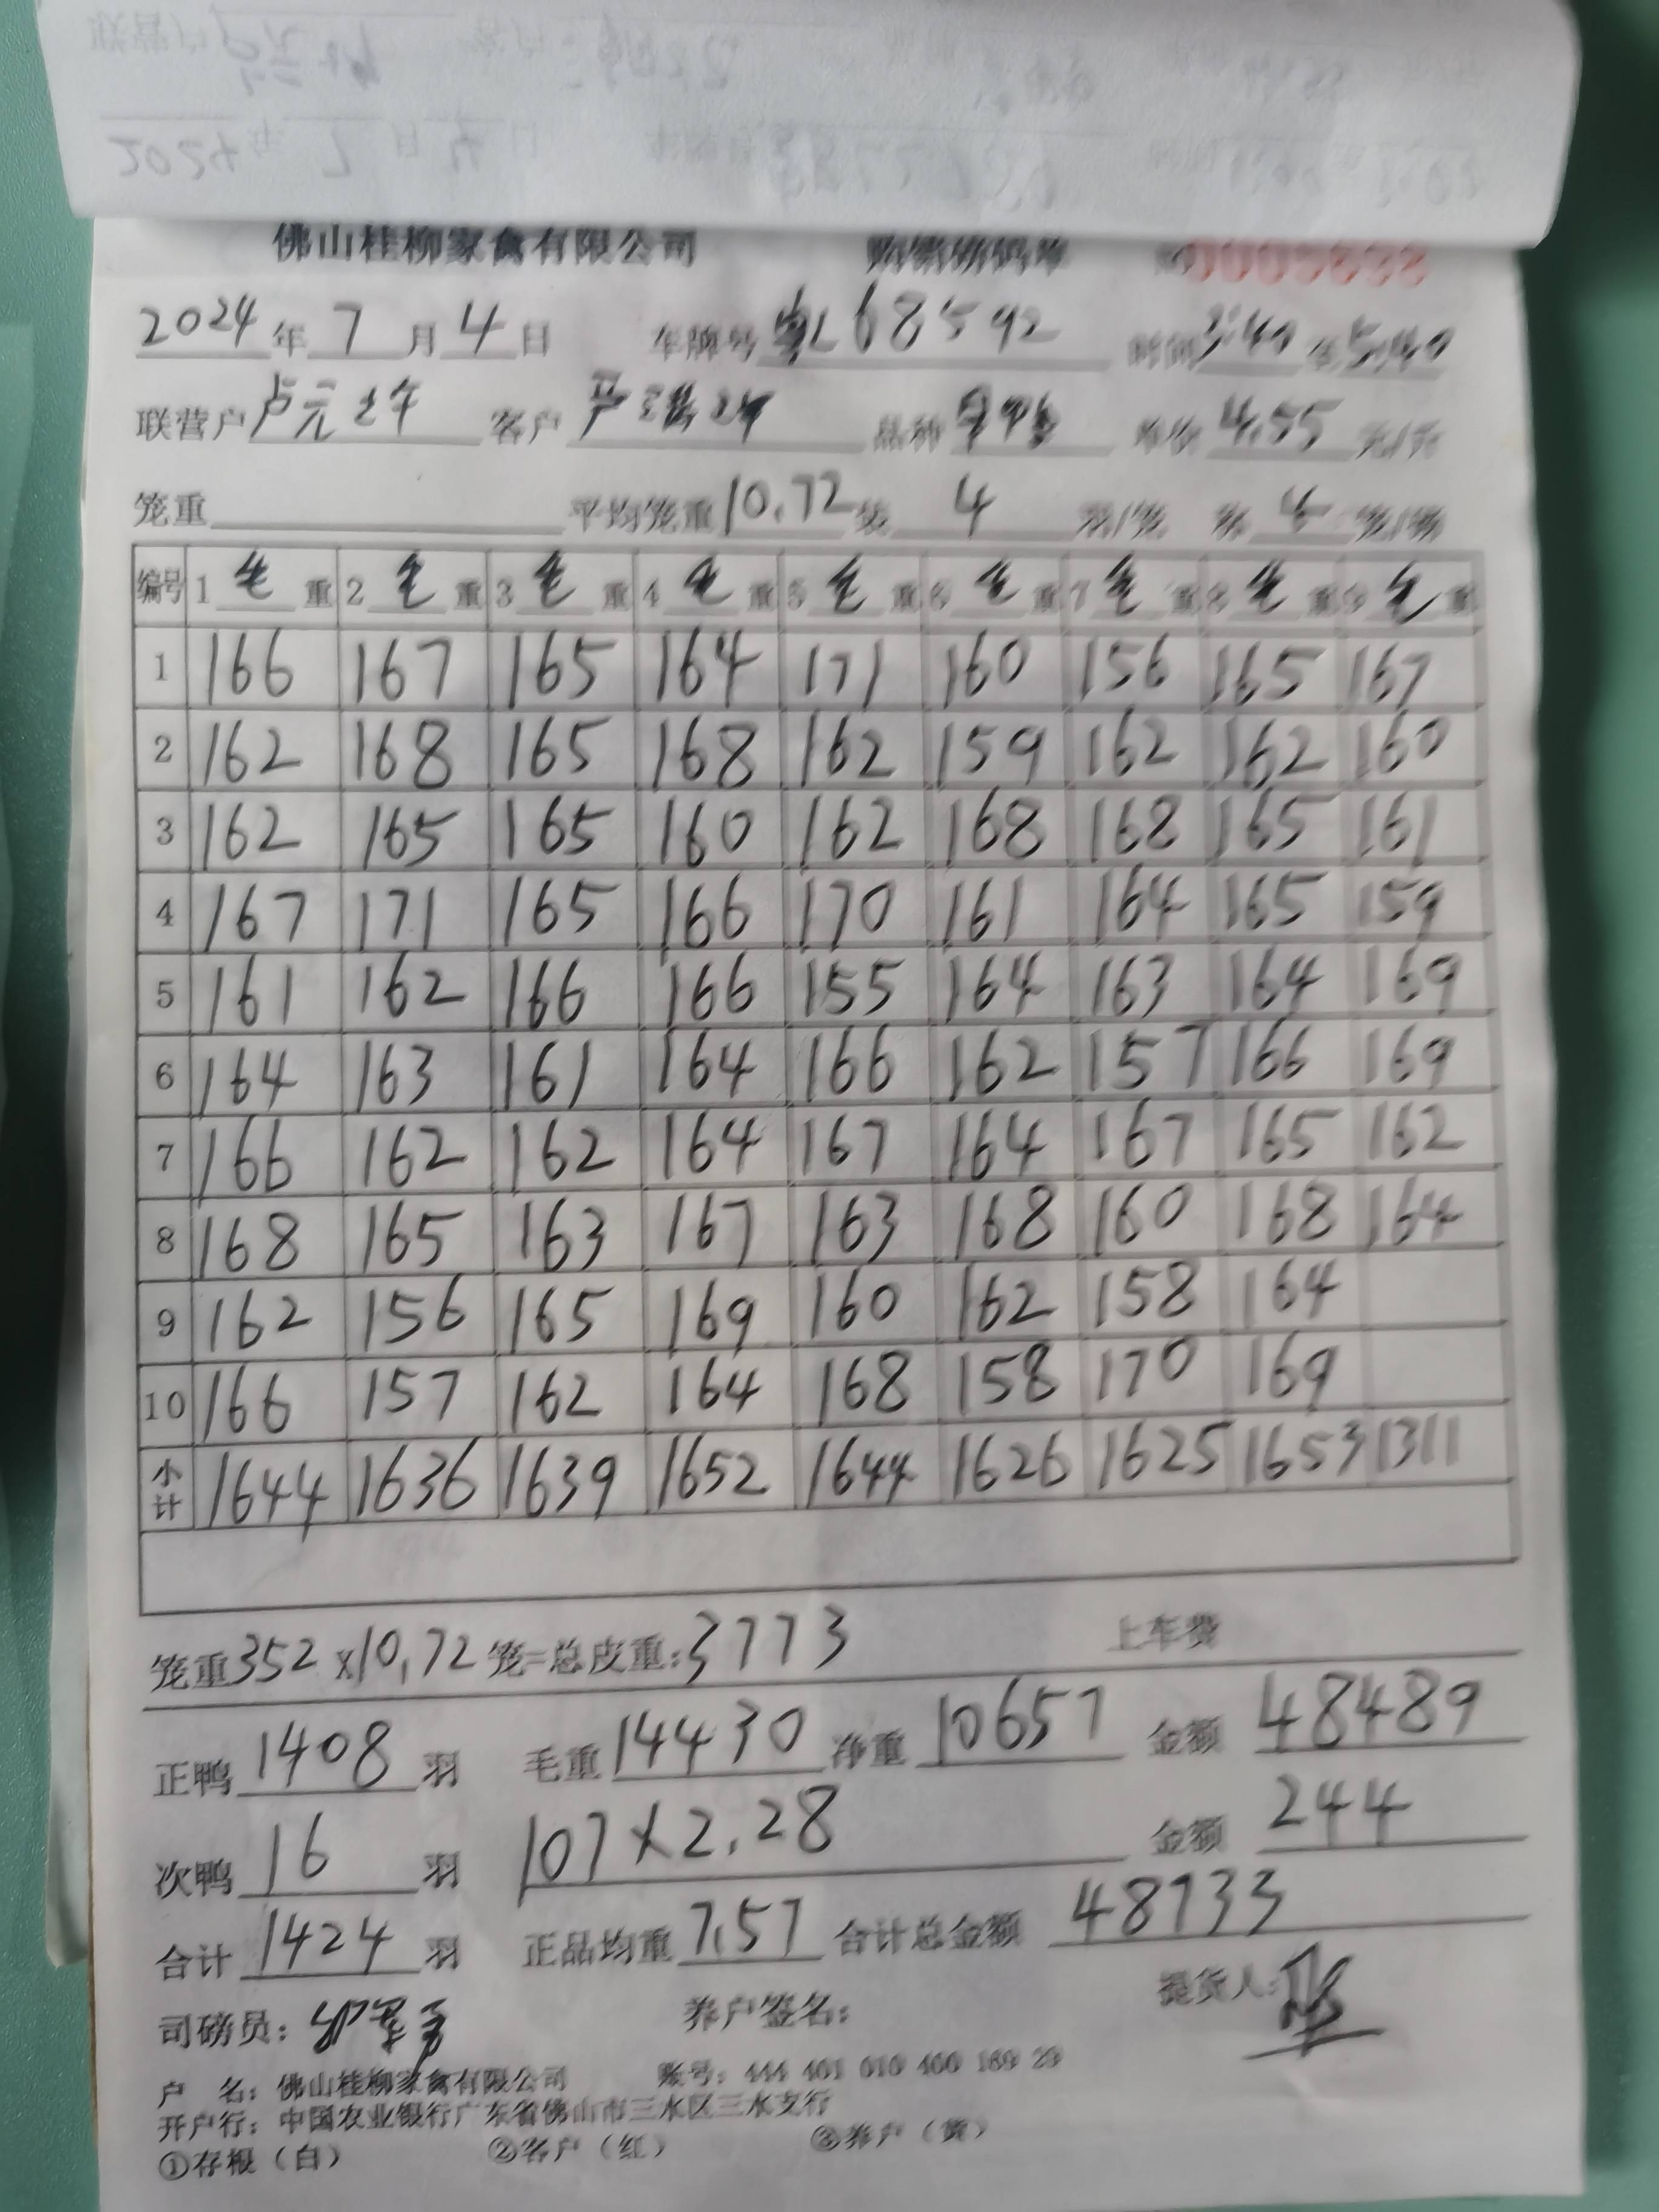 佛山桂柳家禽有限公司 购销磅码单
2024年7月4日 车牌号 粤L68592 时间3:40至5:40
联营户 卢元 客户 严 品种 单价 4.55 元/斤
笼重 平均笼重10.72 装 4 羽/笼 称 4 笼/磅
编号 1 毛 重 2 毛 重 3 毛 重 4 毛 重 5 毛 重 6 毛 重 7 毛 重 8 毛 重 9 毛 重
1 166 167 165 164 171 160 156 165 167
2 162 168 165 168 162 159 162 162 160
3 162 165 165 160 162 168 168 165 161
4 167 171 165 166 170 161 164 165 159
5 161 162 166 166 155 164 163 164 169
6 164 163 161 164 166 162 157 166 169
7 166 162 162 164 167 164 167 165 162
8 168 165 163 167 163 168 160 168 164
9 162 156 165 169 160 162 158 164
10 166 157 162 164 168 158 170 169
小计 1644 1636 1639 1652 1644 1626 1625 1653 1311
笼重352×10.72笼=总皮重:3773 上车费
正鸭 1408 羽 毛重 14430 净重 10657 金额 48489
次鸭 16 羽 107×2.28 金额 244
合计 1424 羽 正品均重 7.57 合计总金额 48733
司磅员: 养户签名: 提货人:
户 名:佛山桂柳家禽有限公司 账号:444 401 010 400 169 29
开户行:中国农业银行广东省佛山市三水区三水支行
①存根(白) ②客户(红) ③养户(黄)